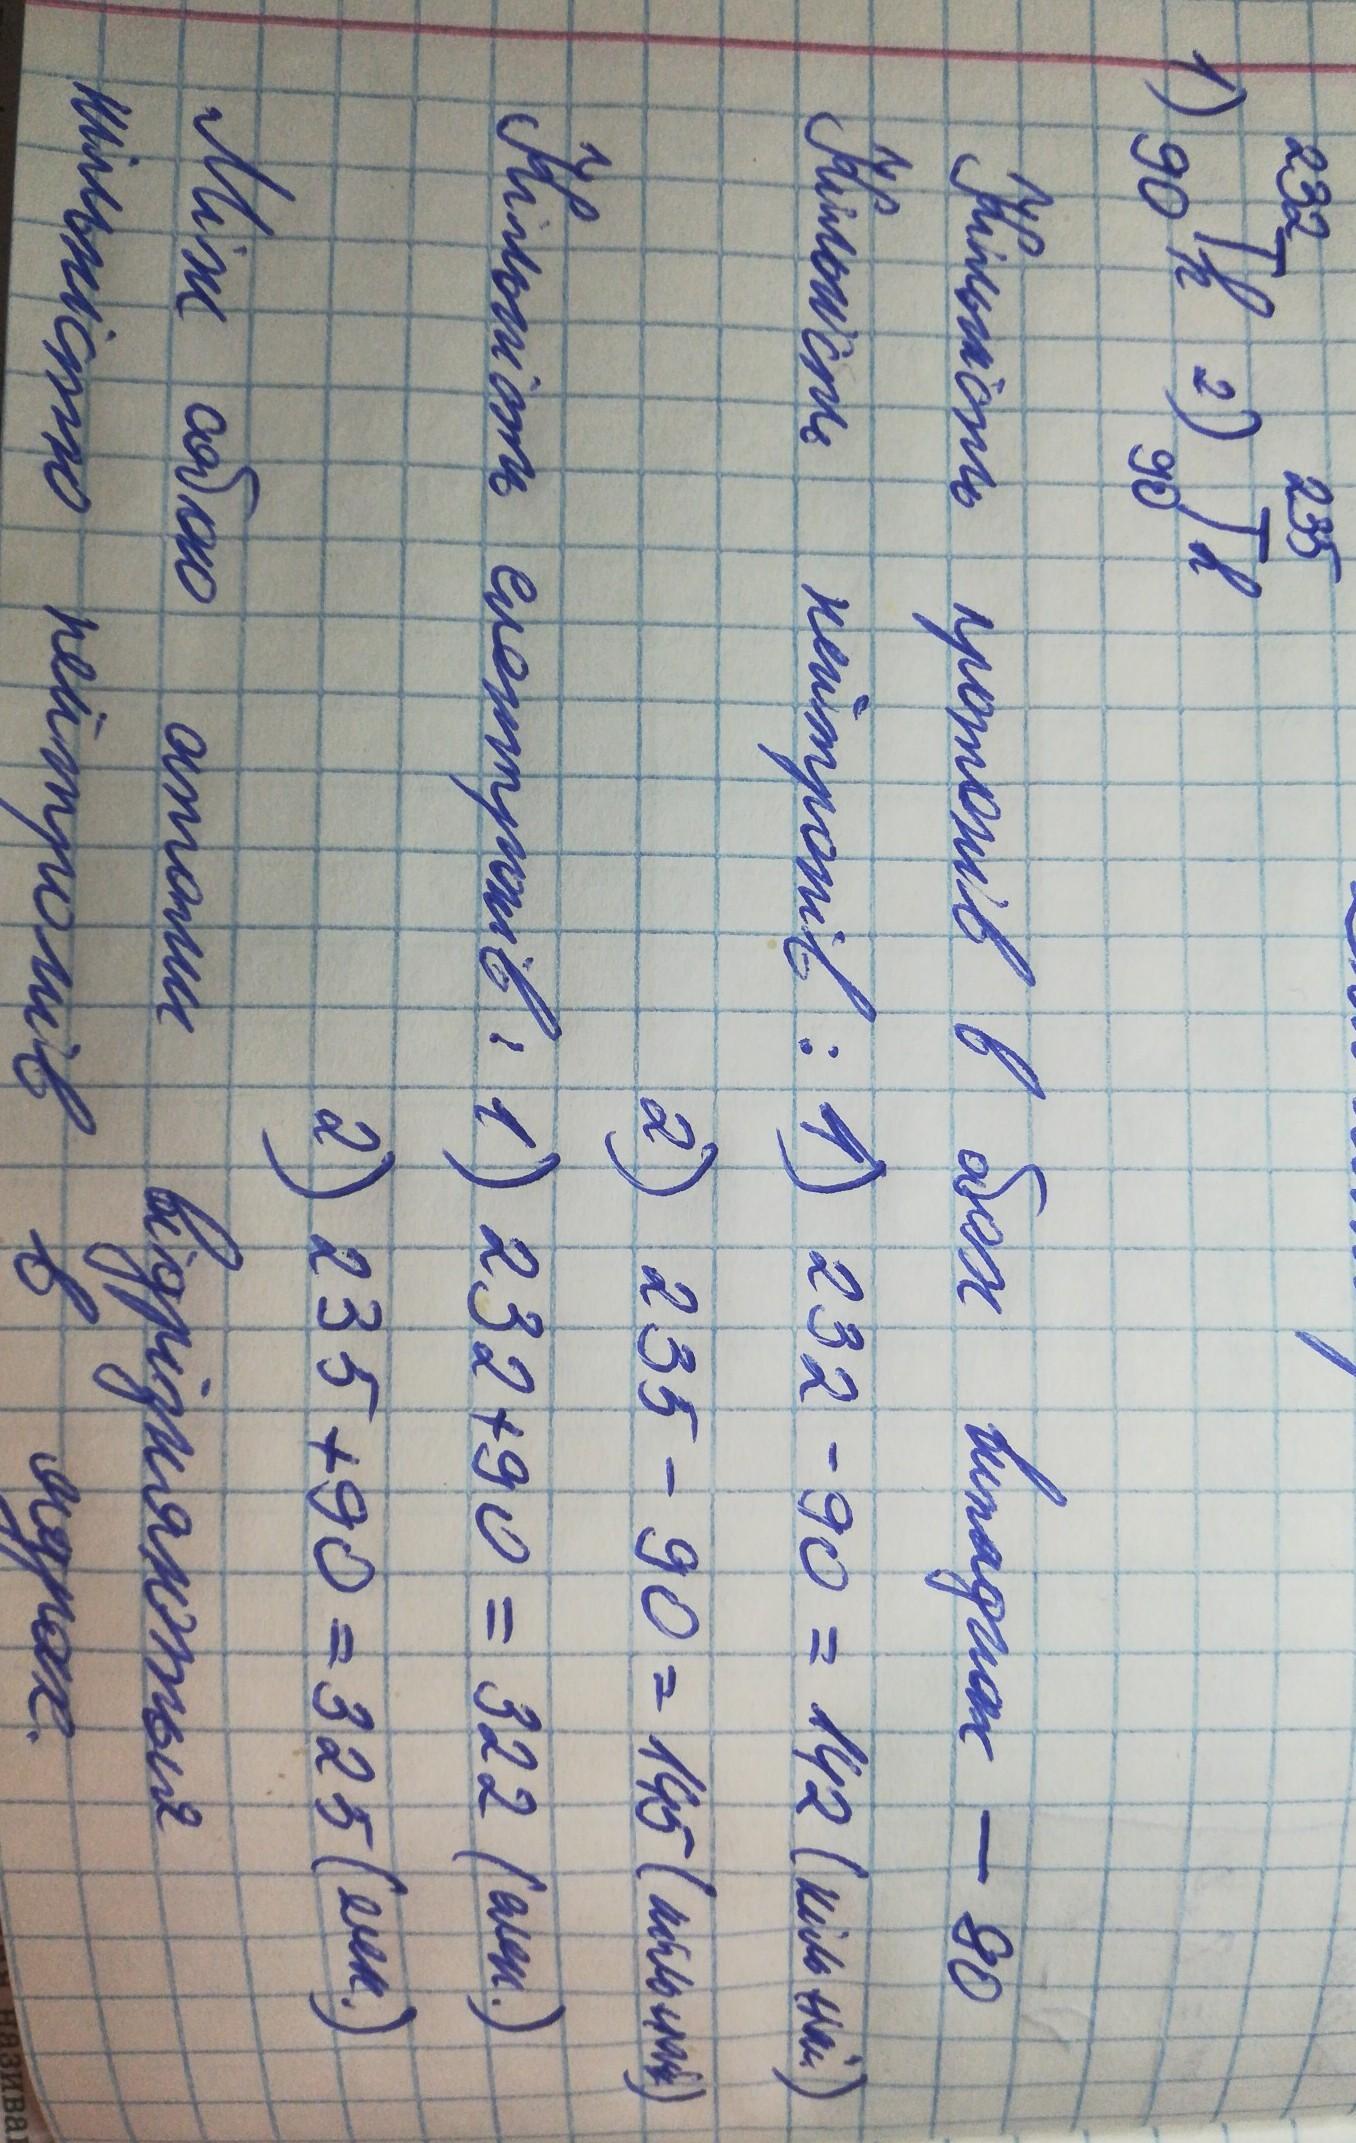 1) ²³²₉₀Th 2) ²³⁵₉₀Th
Кількість протонів в обох випадках — 90
Кількість нейтронів: 1) 232 - 90 = 142
2) 235 - 90 = 145
Кількість електронів: 1) 232 + 90 = 322 (елек.)
2) 235 + 90 = 325 (елек.)
Між собою атоми відрізняються
кількістю нейтронів в ядрах.